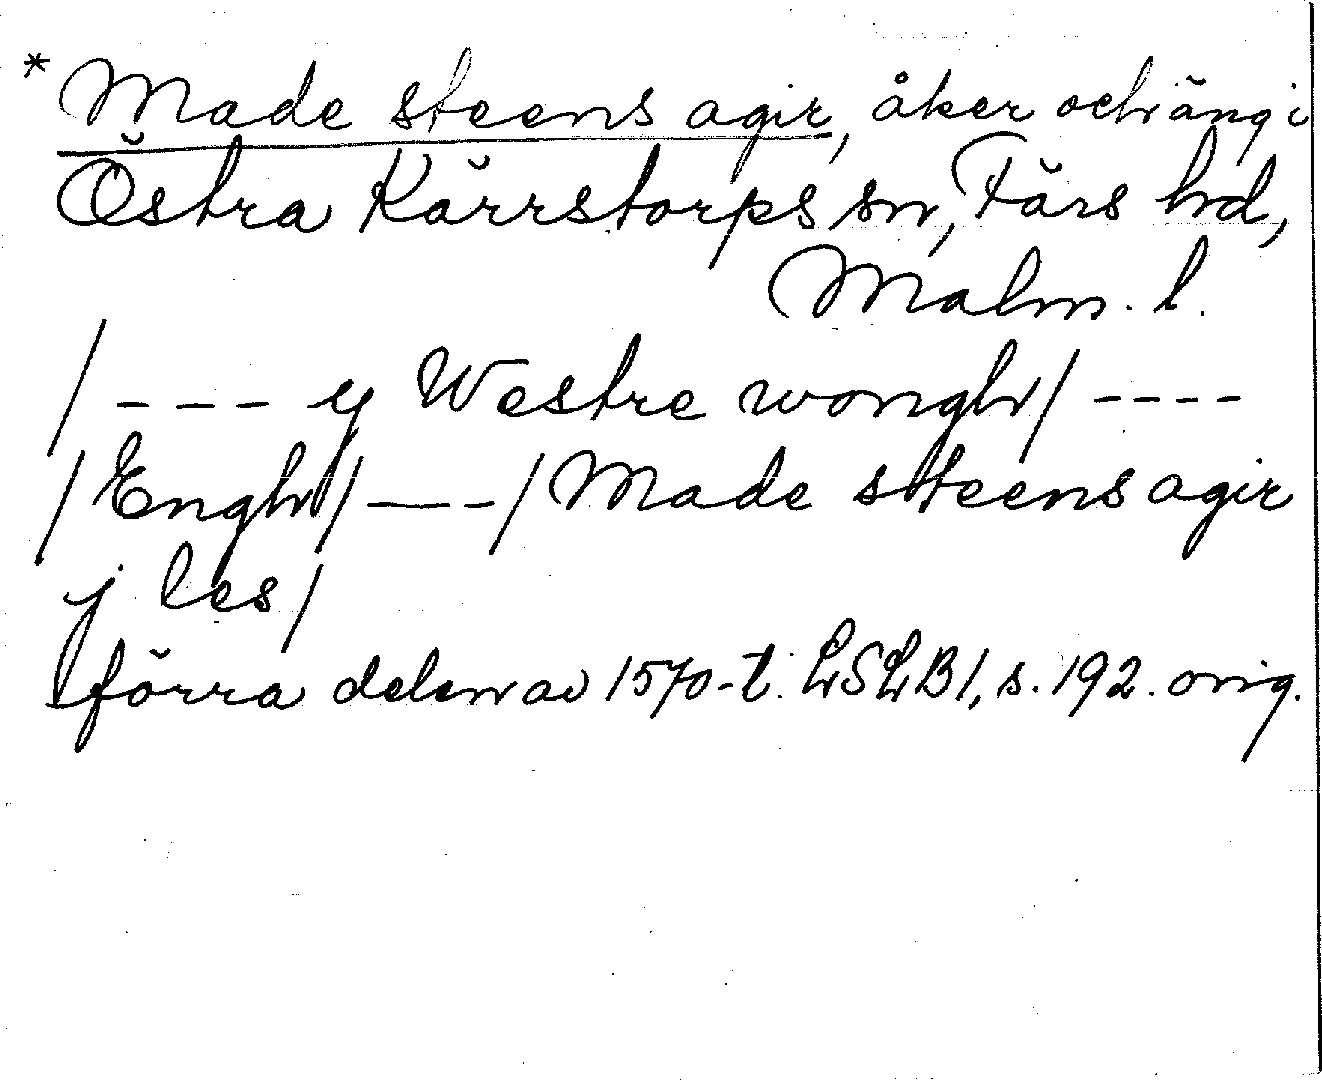 * Made steens agir, åker och äng i
Östra Kärrstorps sn, Färs hd,
Malm. l.
/ - - - y Westre wongh/ - - - -
/Engh/ — - -/Made steens agir
j les/
förra delen av 1570-t. LSLB 1, s. 192. orig.